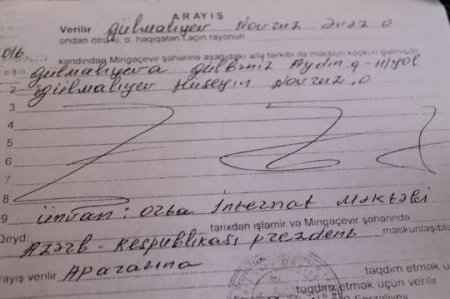 ARAYIŞ
Verilir Gülmalıyev Novruz Əvəz o
ondan ötrü ki, o, həqiqətən Laçın rayonun
016
kəndindən Mingəçevir şəhərinə aşağıdakı ailə tərkibi ilə məcburi köçkün gəlmişdir
1 Gülmalıyeva Gülbəniz Aydın q - h/yol
2 Gülmalıyev Hüseyin Novruz o
3
4
5
6
7
8
9 Ünvan: Orta İnternat Məktəbi
Qeyd tarixdən işləmir və Mingəçevir şəhərində
Azərb - Respublikası prezdent məskunlaşıbla
arayış verilir Aparatına
təqdim etmək
təqdim etmək üçün verilir